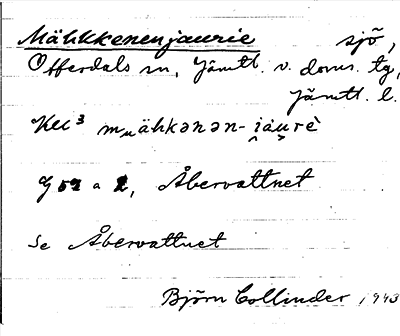 Mähkkenenjaurie sjö,
Offerdals sn, Jämtl. v. doms. tg,
Jämtl. l.
Kll³ mᵤähkənən-i̯ȧu̯rè
G 52 a 2, Åbervattnet
Se Åbervattnet
Björn Collinder 1943